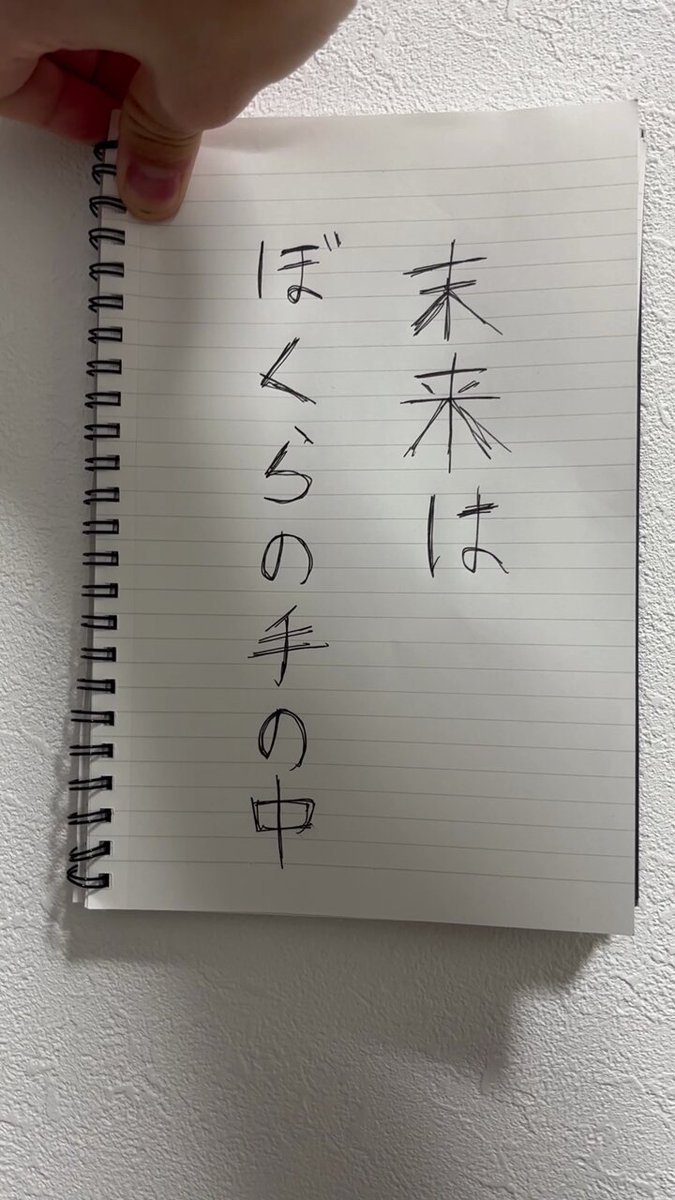 未来は
ぼくらの手の中